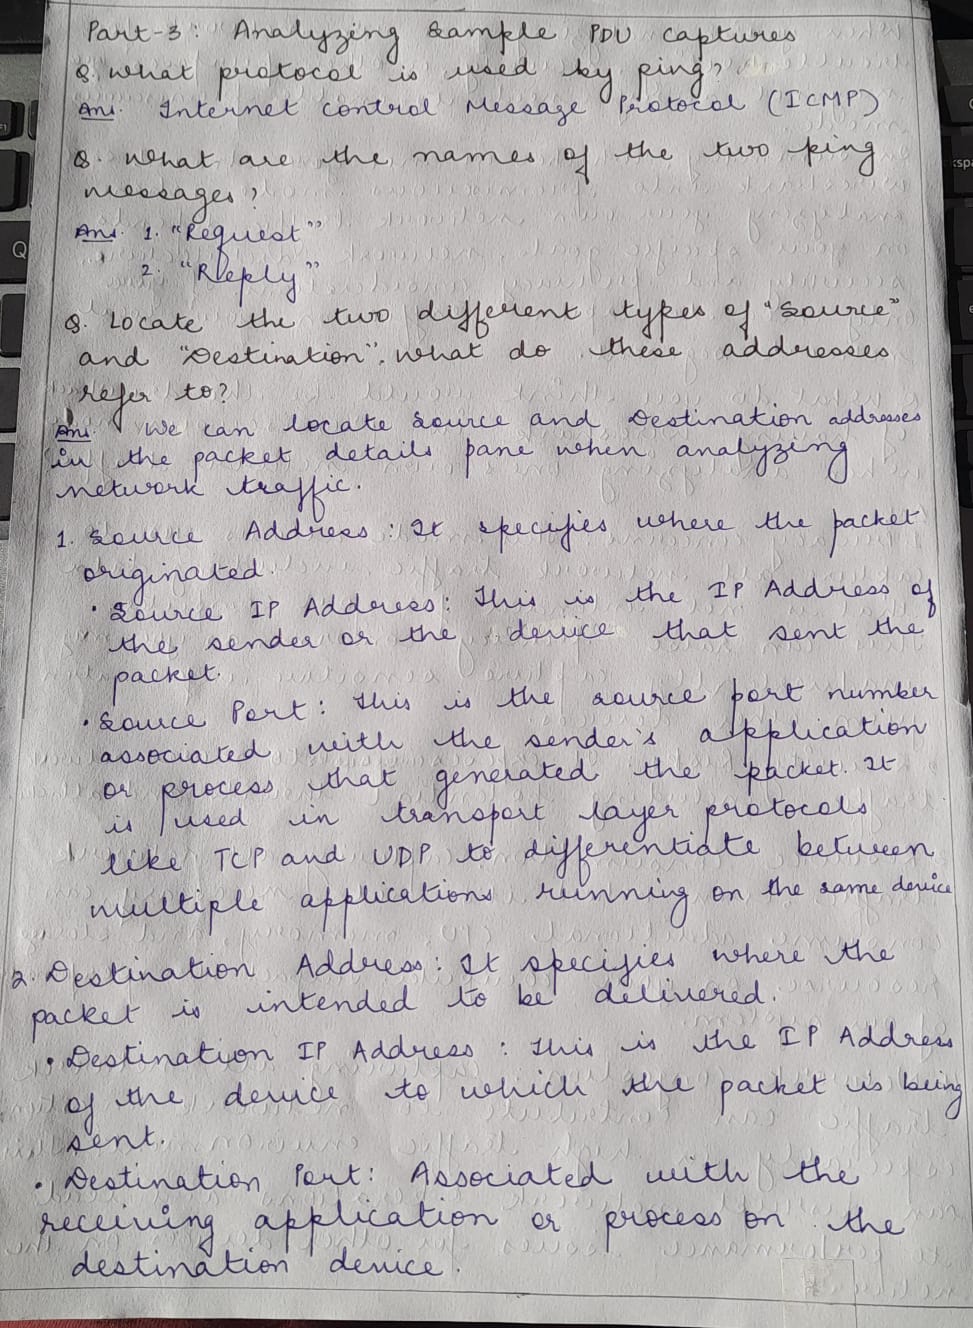 Part-3: Analyzing Sample PDU captures
Q. What protocol is used by ping?
Ans. Internet control Message Protocol (ICMP)
Q. What are the names of the two ping
messages?
Ans. 1. "Request"
2. "Reply"
Q. Locate the two different types of "Source"
and "Destination". What do these addresses
refer to?
Ans. We can locate Source and Destination addresses
in the packet details pane when analyzing
network traffic.
1. Source Address: It specifies where the packet
originated.
• Source IP Address: This is the IP Address of
the sender or the device that sent the
packet.
• Source Port: This is the source port number
associated with the sender's application
or process that generated the packet. It
is used in transport layer protocols
like TCP and UDP to differentiate between
multiple applications running on the same device
2. Destination Address: It specifies where the
packet is intended to be delivered.
• Destination IP Address: This is the IP Address
of the device to which the packet is being
sent.
• Destination Port: Associated with the
receiving application or process on the
destination device.